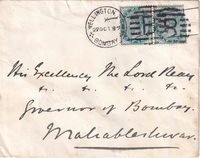 WELLINGTON
BOMBAY
His Excellency The Lord Reay
&. &. &.
Governor of Bombay.
Mahableshwar.